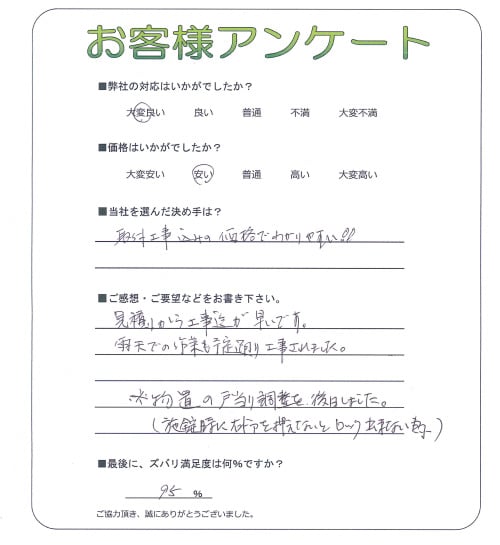 お客様アンケート
■弊社の対応はいかがでしたか？
大変良い 良い 普通 不満 大変不満
■価格はいかがでしたか？
大変安い 安い 普通 高い 大変高い
■当社を選んだ決め手は？
取付工事込みの価格でわかりやすい!!
■ご感想・ご要望などをお書き下さい。
見積りから工事迄が早いです。
雨天での作業も予定通り工事されました。
※物置の戸当り調整を後日しました。
(施錠時に を押えないとロック出来ない為)
■最後に、ズバリ満足度は何％ですか？
95 %
ご協力頂き、誠にありがとうございました。